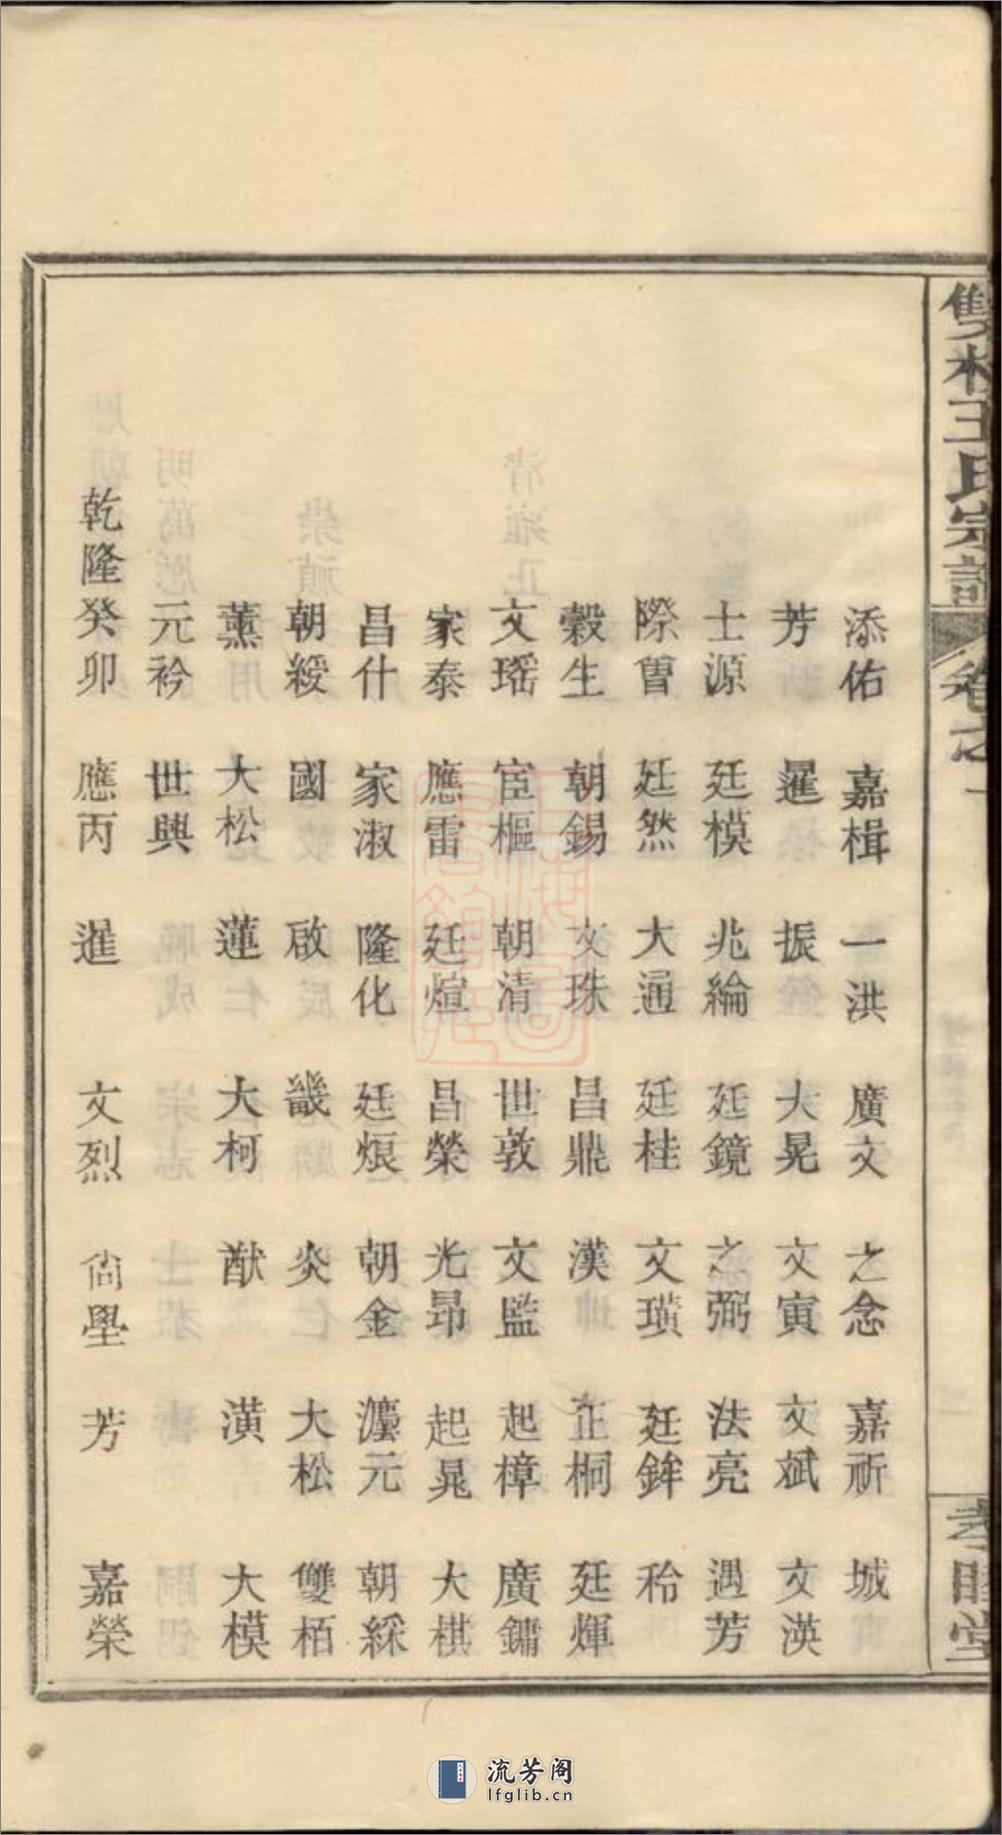 雙杉王氏宗譜 卷之一 孝睦堂
添佑 嘉楫 一洪 廣文 之念 嘉祈 城
芳 暹 振 大晃 文寅 文斌 文漢
士源 廷模 兆綸 廷鏡 之弼 法亮 遇芳
際曾 廷然 大通 廷桂 文璜 廷鉾 秢
榖生 朝錫 文珠 昌鼎 漢 正桐 廷輝
文瑤 宦樞 朝清 世敦 文監 起樟 廣鏞
家泰 應雷 廷煊 昌榮 光昂 起晁 大棋
昌什 家淑 隆化 廷烺 朝金 灋元 朝綵
朝綬 國 啟 畿 炎 大松 雙栢
薰 大松 蓮 大柯 猷 潢 大模
元衿 世興
乾隆癸卯 應丙 暹 文烈 尙壆 芳 嘉榮
流芳阁
lfglib.cn